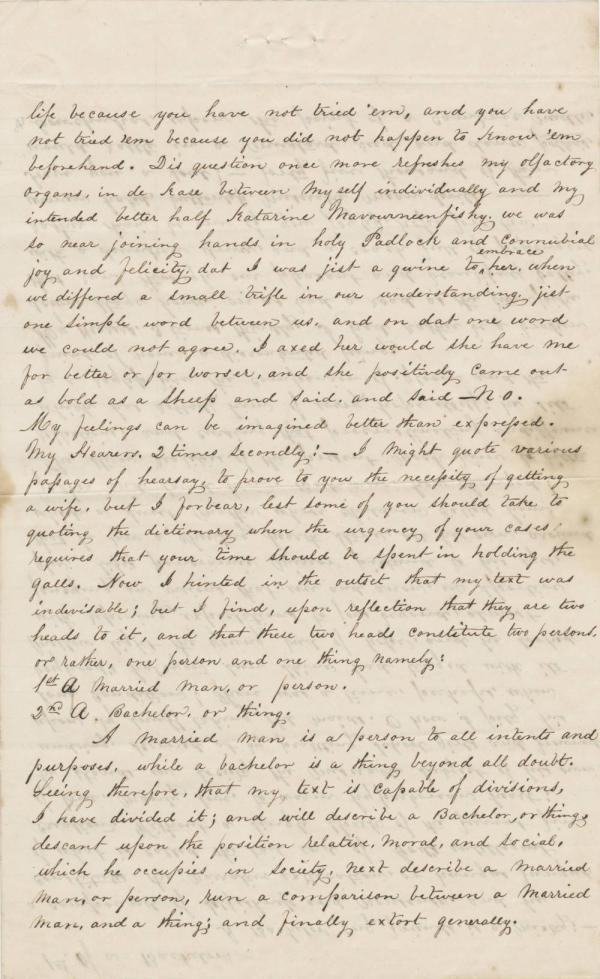 life because you have not tried 'em, and you have
not tried 'em because you did not happen to know 'em
beforehand. Dis question once more refreshes my olfactory
organs, in de kase between myself individually and my
intended better half Katarine Mavourneenfishy. we was
so near joining hands in holy Padlock and connubial
joy and felicity, dat I was jist a gwine to embrace her, when
we differed a small trifle in our understanding, jist
one simple word between us, and on dat one word
we could not agree. I axed her would she have me
for better or for worser, and she positively came out
as bold as a sheep and said, and said — No.
My feelings can be imagined better than expressed.
My Hearers, 2 times Secondly: — I might quote various
passages of hearsay, to prove to you the necessity of getting
a wife, but I forbear, lest some of you should take to
quoting the dictionary when the urgency of your cases
requires that your time should be spent in holding the
galls. Now I hinted in the outset that my text was
indevisable; but I find, upon reflection that they are two
heads to it, and that these two heads constitute two persons,
or rather, one person and one thing namely:
1st A Married man, or person.
2nd A. Bachelor, or thing.
A married man is a person to all intents and
purposes, while a bachelor is a thing beyond all doubt.
Seeing therefore, that my text is capable of divisions,
I have divided it; and will describe a Bachelor, or thing,
descant upon the position relative, moral, and social,
which he occupies in society, next describe a married
man, or person, run a comparison between a married
man, and a thing; and finally extort generally.